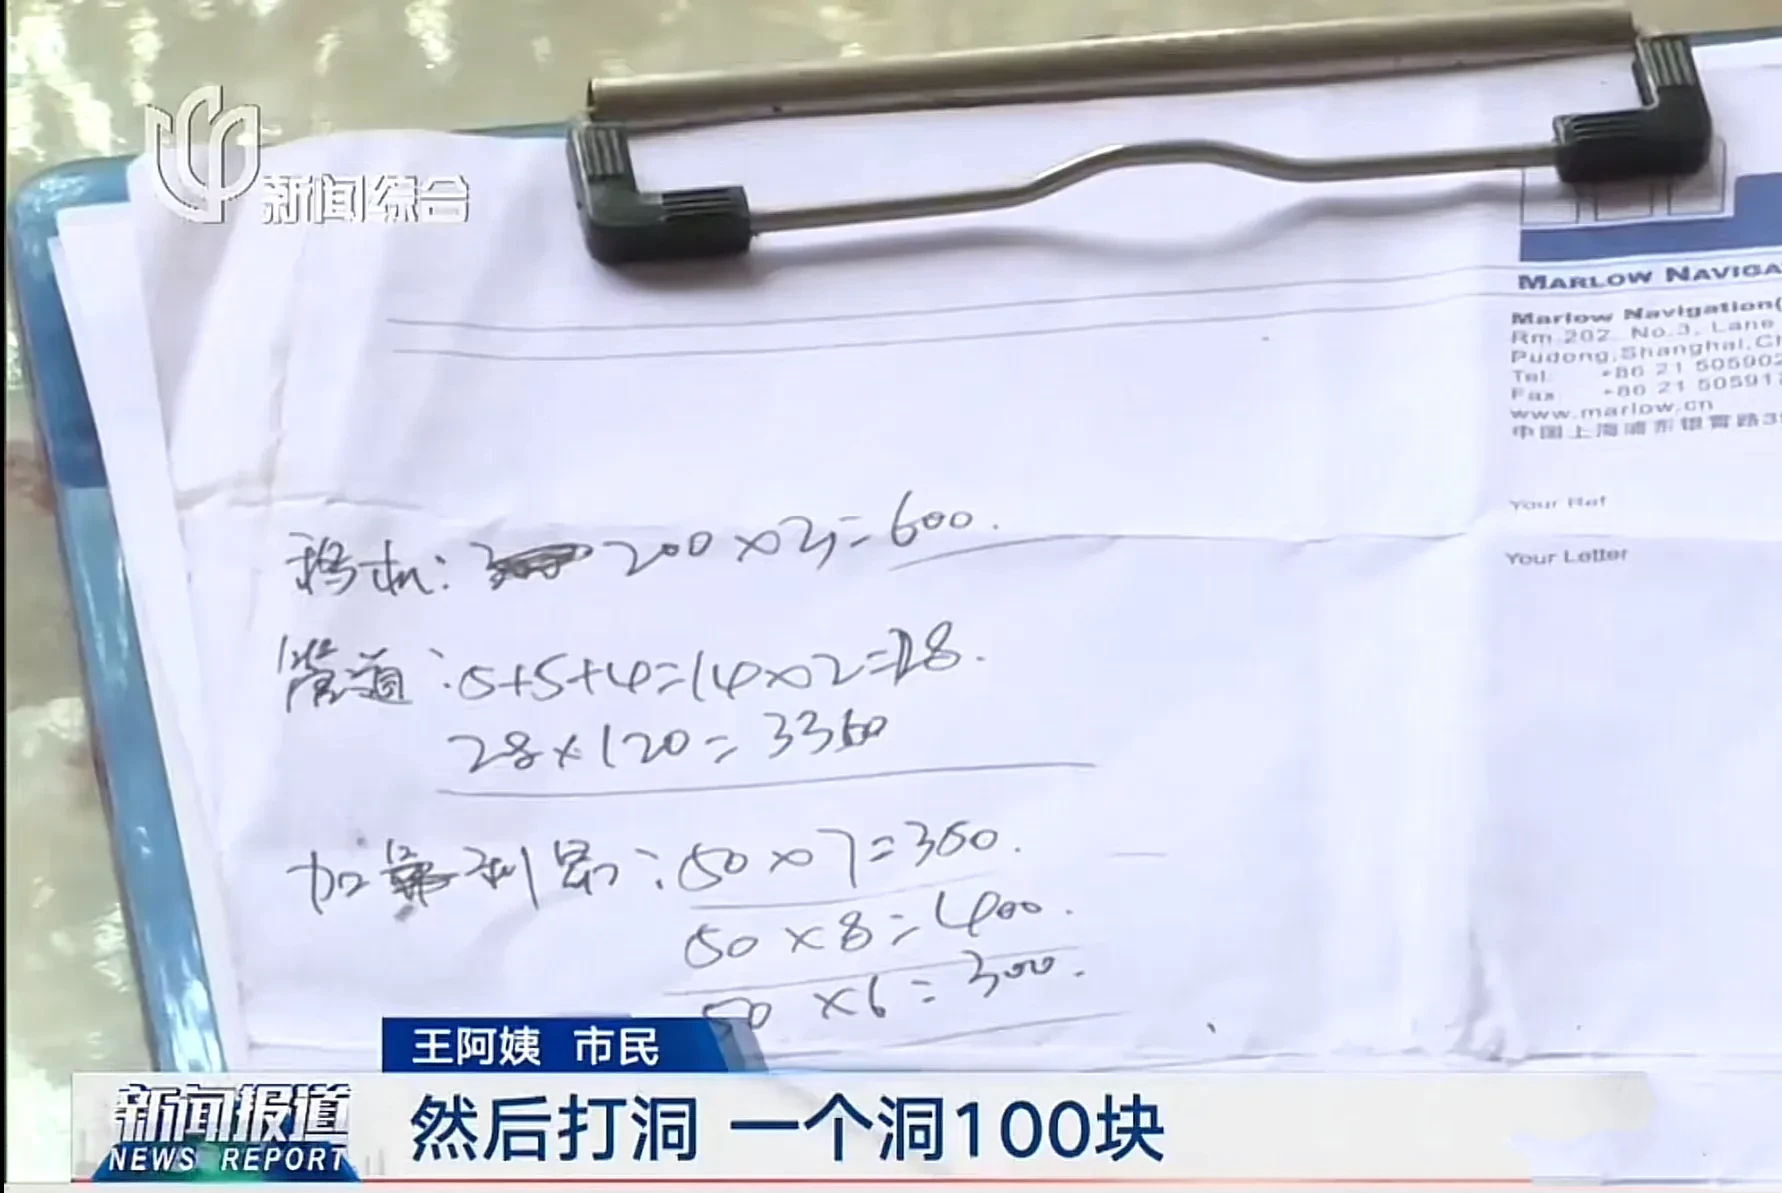 新闻综合
MARLOW NAVIGA
Marlow Navigation(
Rm 202, No.3, Lane
Pudong, Shanghai, Ch
Tel: +86 21 505902
Fax: +86 21 505917
www.marlow.cn
中国上海浦东银霄路3
Your Ref
Your Letter
移机: 200×3=600.
管道: 5+5+4=14×2=28.
28×120=3360
加利昂: 50×7=350.
50×8=400.
50×6=300.
王阿姨 市民
然后打洞 一个洞100块
新闻报道
NEWS REPORT